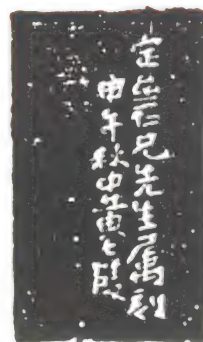 定仁兄先生属刻
甲午秋中黄士陵